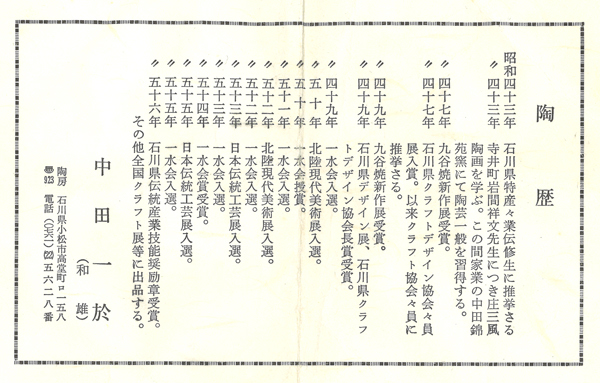 陶歴
昭和四十三年　石川県特産々業伝修生に推挙さる
〃四十三年　寺井町岩間祥文先生につき庄三風
陶画を学ぶ。この間家業の中田錦
苑窯にて陶芸一般を習得する。
〃四十七年　九谷焼新作展受賞。
〃四十七年　石川県クラフトデザイン協会々員
展入賞。以来クラフト協会々員に
推挙さる。
〃四十九年　九谷焼新作展受賞。
〃四十九年　石川県デザイン展、石川県クラフ
トデザイン協会長賞受賞。
〃四十九年　一水会入選。
〃五十年　北陸現代美術展入選。
〃五十年　一水会授賞。
〃五十一年　一水会入選。
〃五十二年　北陸現代美術展入選。
〃五十二年　一水会入選。
〃五十三年　日本伝統工芸展入選。
〃五十三年　一水会入選。
〃五十四年　一水会賞受賞。
〃五十五年　日本伝統工芸展入選。
〃五十五年　一水会入選。
〃五十六年　石川県伝統産業技能奨励章受賞。
その他全国クラフト展等に出品する。
中田一於
（和雄）
陶房　石川県小松市高堂町ロ一五八
〒923　電話（〇七六一）㉒五六二八番